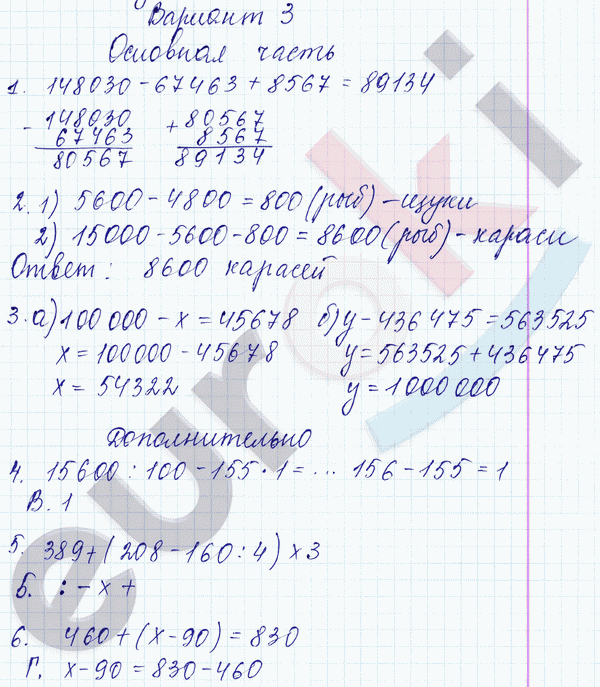 Вариант 3
Основная часть
1. 148030 - 67463 + 8567 = 89134
- 148030 + 80567
67463 8567
80567 89134
2. 1) 5600 - 4800 = 800 (рыб) - щуки
2) 15000 - 5600 - 800 = 8600 (рыб) - караси
Ответ: 8600 карасей
3. а) 100 000 - x = 45678 б) y - 436 475 = 563525
x = 100000 - 45678 y = 563525 + 436475
x = 54322 y = 1000 000
Дополнительно
4. 15600 : 100 - 155 · 1 = ... 156 - 155 = 1
В. 1
5. 389 + (208 - 160 : 4) x 3
Б. : - x +
6. 460 + (x - 90) = 830
Г. x - 90 = 830 - 460
euroki